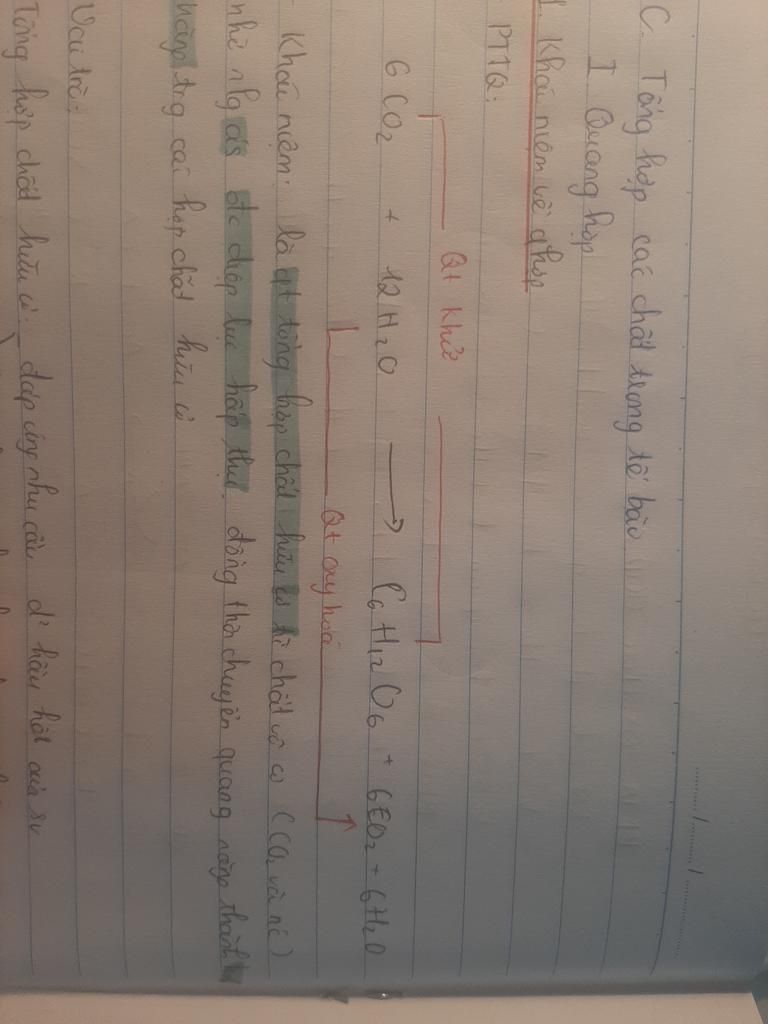 ....../....../......
C. Tổng hợp các chất trong tế bào
I Quang hợp
1. Khái niệm về qhợp
PTTQ:
Qt khử
6 CO2 + 12 H2O → C6H12O6 + 6O2 + 6H2O
Qt oxy hoá
- Khái niệm: là qt tổng hợp chất hữu cơ từ chất vô cơ (CO2 và nc)
nhờ nlg ás đc diệp lục hấp thụ đồng thời chuyển quang năng thành
năng trg các hợp chất hữu cơ
Vai trò:
Tổng hợp chất hữu cơ: đáp ứng nhu cầu d² hầu hết của sv